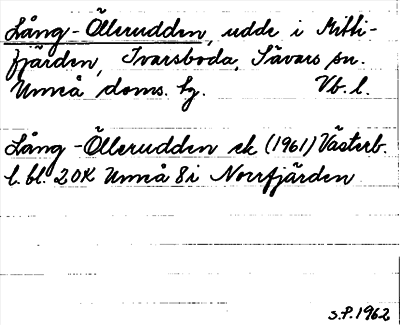 Lång-Öllerudden, udde i Mitti-
fjärden, Ivarsboda, Sävars sn.
Umeå doms. hg. Vb. l.
Lång-Öllerudden ek (1961) Västerb.
l. bl. 20K Umeå 8i Norrfjärden
S.P. 1962